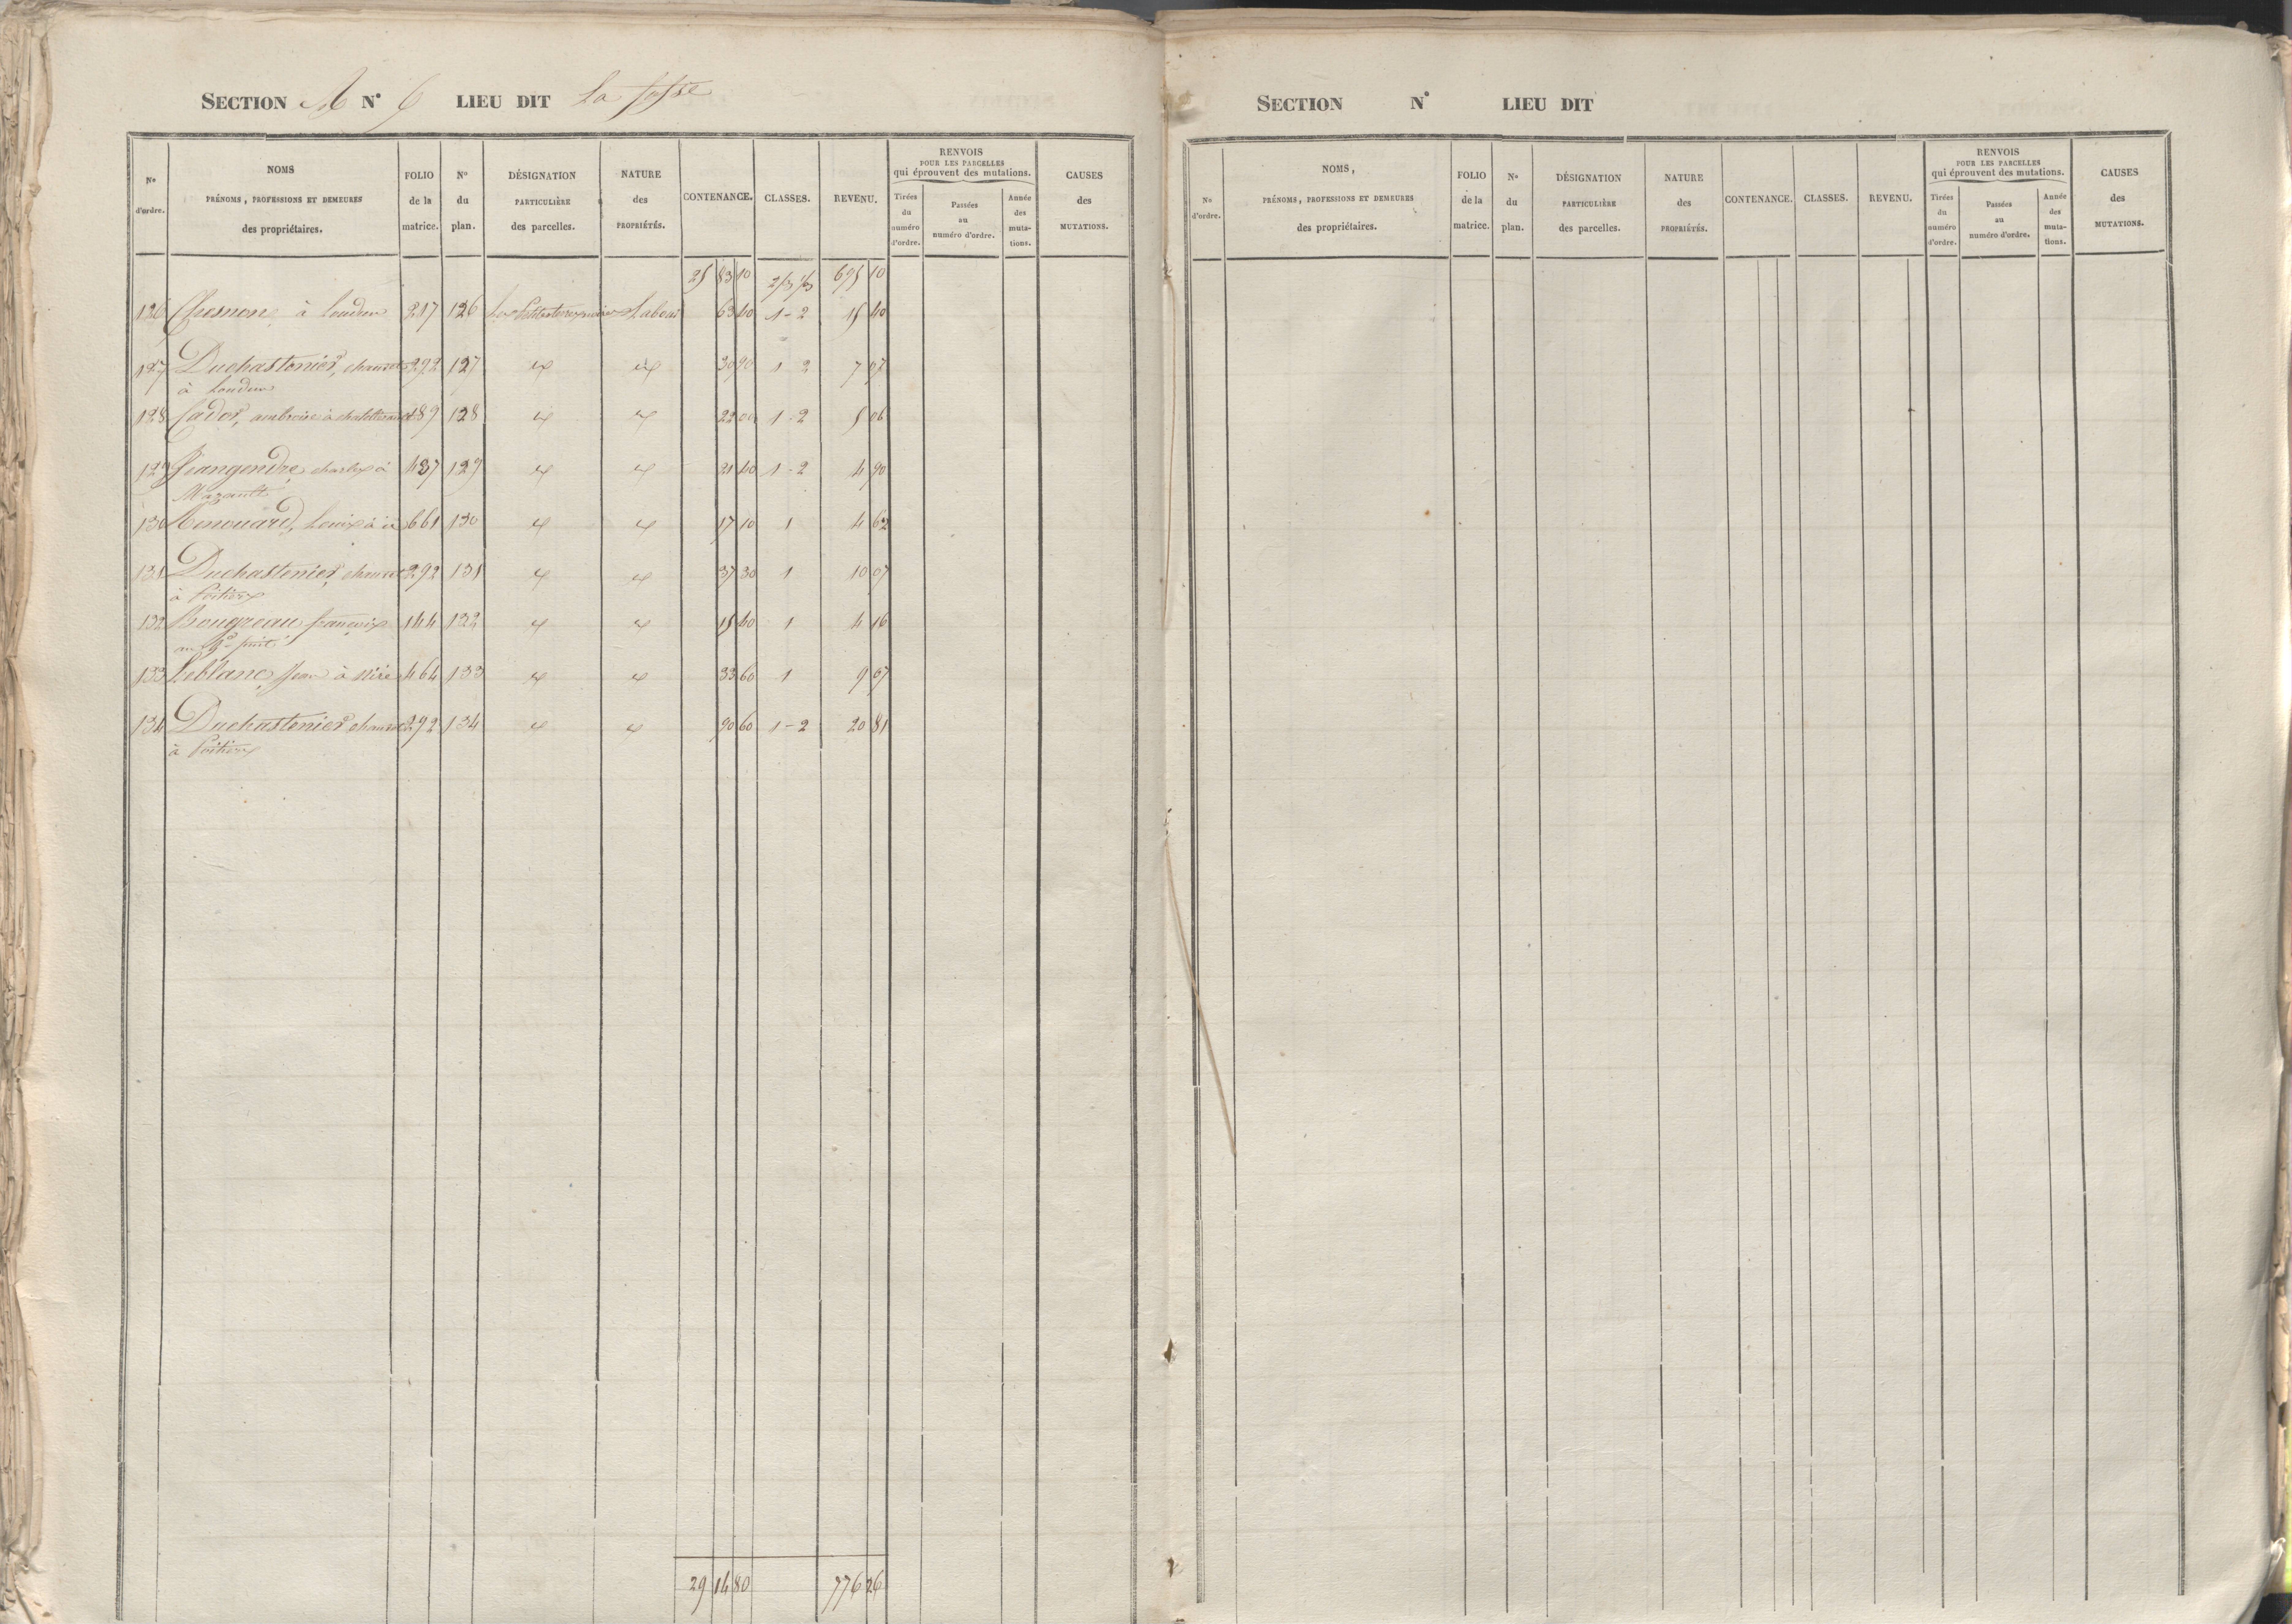 SECTION A N° 6 LIEU DIT La fosse
N° d'ordre. NOMS PRÉNOMS, PROFESSIONS ET DEMEURES des propriétaires. FOLIO de la matrice. N° du plan. DÉSIGNATION PARTICULIÈRE des parcelles. NATURE des PROPRIÉTÉS. CONTENANCE. CLASSES. REVENU. RENVOIS POUR LES PARCELLES qui éprouvent des mutations. Tirées du numéro d'ordre. Passées au numéro d'ordre. Année des mutations. CAUSES des MUTATIONS.
25 83 10 695 10
126 Chesnon, à loudun 217 126 Labour 63 40 1-2 15 40
127 Duchastenier, 292 127 id id 30 90 1 2 7 97
à Loudun
128 Cador, ambroise à chatellerault 189 128 id id 22 00 1-2 5 06
129 Jeangendre, charles à 437 129 id id 21 40 1-2 4 90
Mazault
130 Renouard, Louis à id 661 130 id id 17 10 1 4 62
131 Duchastenier, 292 131 id id 37 30 1 10 07
à Poitiers
132 Bougreau françois 144 132 id id 15 40 1 4 16
133 Leblanc, Jean à Niré 464 133 id id 33 60 1 9 07
134 Duchastenier 292 134 id id 90 60 1-2 20 81
à Poitiers
29 14 80 776 26
SECTION N° LIEU DIT
N° d'ordre. NOMS, PRÉNOMS, PROFESSIONS ET DEMEURES des propriétaires. FOLIO de la matrice. N° du plan. DÉSIGNATION PARTICULIÈRE des parcelles. NATURE des PROPRIÉTÉS. CONTENANCE. CLASSES. REVENU. RENVOIS POUR LES PARCELLES qui éprouvent des mutations. Tirées du numéro d'ordre. Passées au numéro d'ordre. Année des mutations. CAUSES des MUTATIONS.